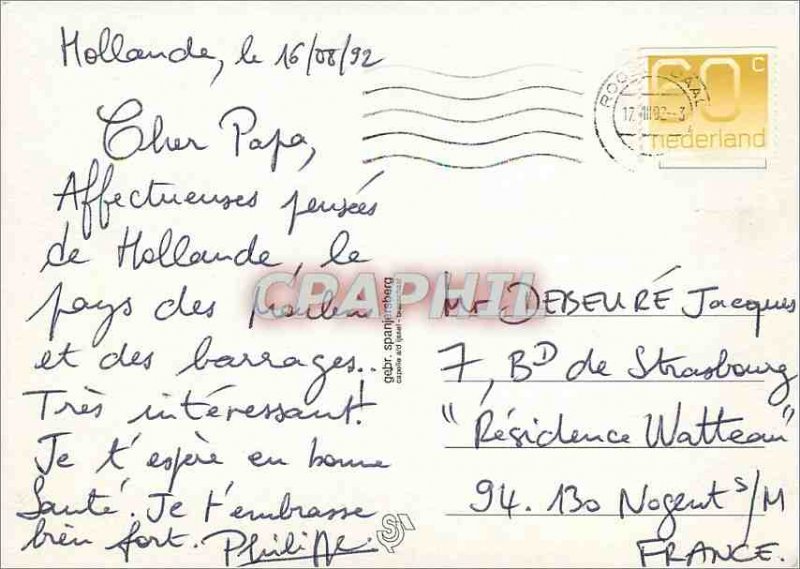 Hollande, le 16/08/92
Cher Papa,
Affectueuses pensées
de Hollande, le
pays des moulins
et des barrages..
Très intéressant!
Je t'espère en bonne
Santé. Je t'embrasse
bien fort. Philippe
60 c
nederland
CRAPHIL
gebr. spanjersberg
Mr DEBEURÉ Jacques
7, BD de Strasbourg
"Résidence Watteau"
94.130 Nogent s/M
FRANCE.